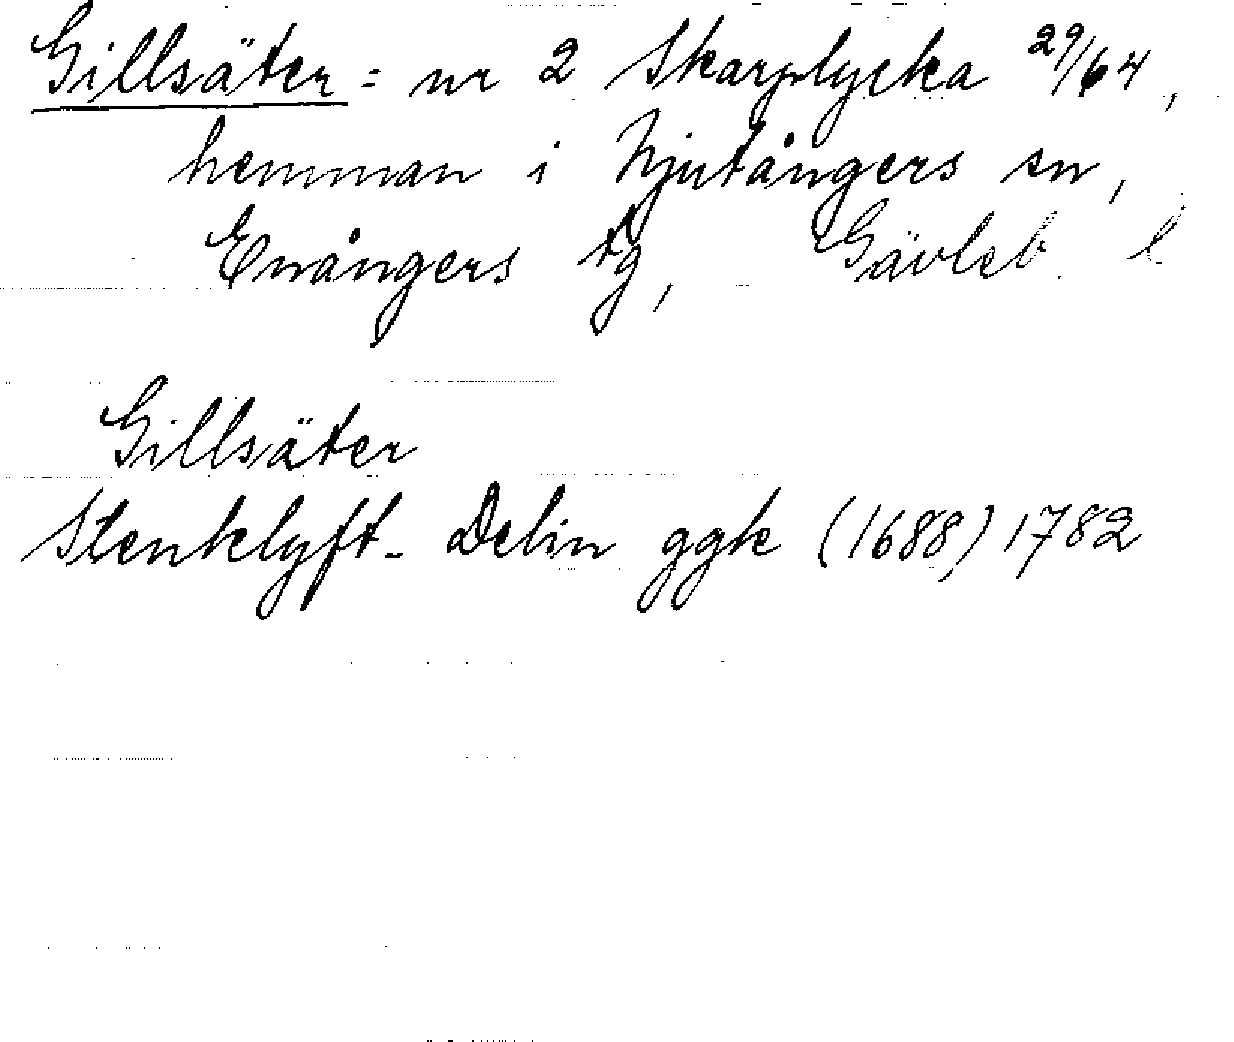 Gillsäter = nr 2 Skarplycka 29/64,
hemman i Njutångers sn,
Enångers tg, Gävleb. l
Gillsäter
Stenklyft- Delin ggk (1688) 1782